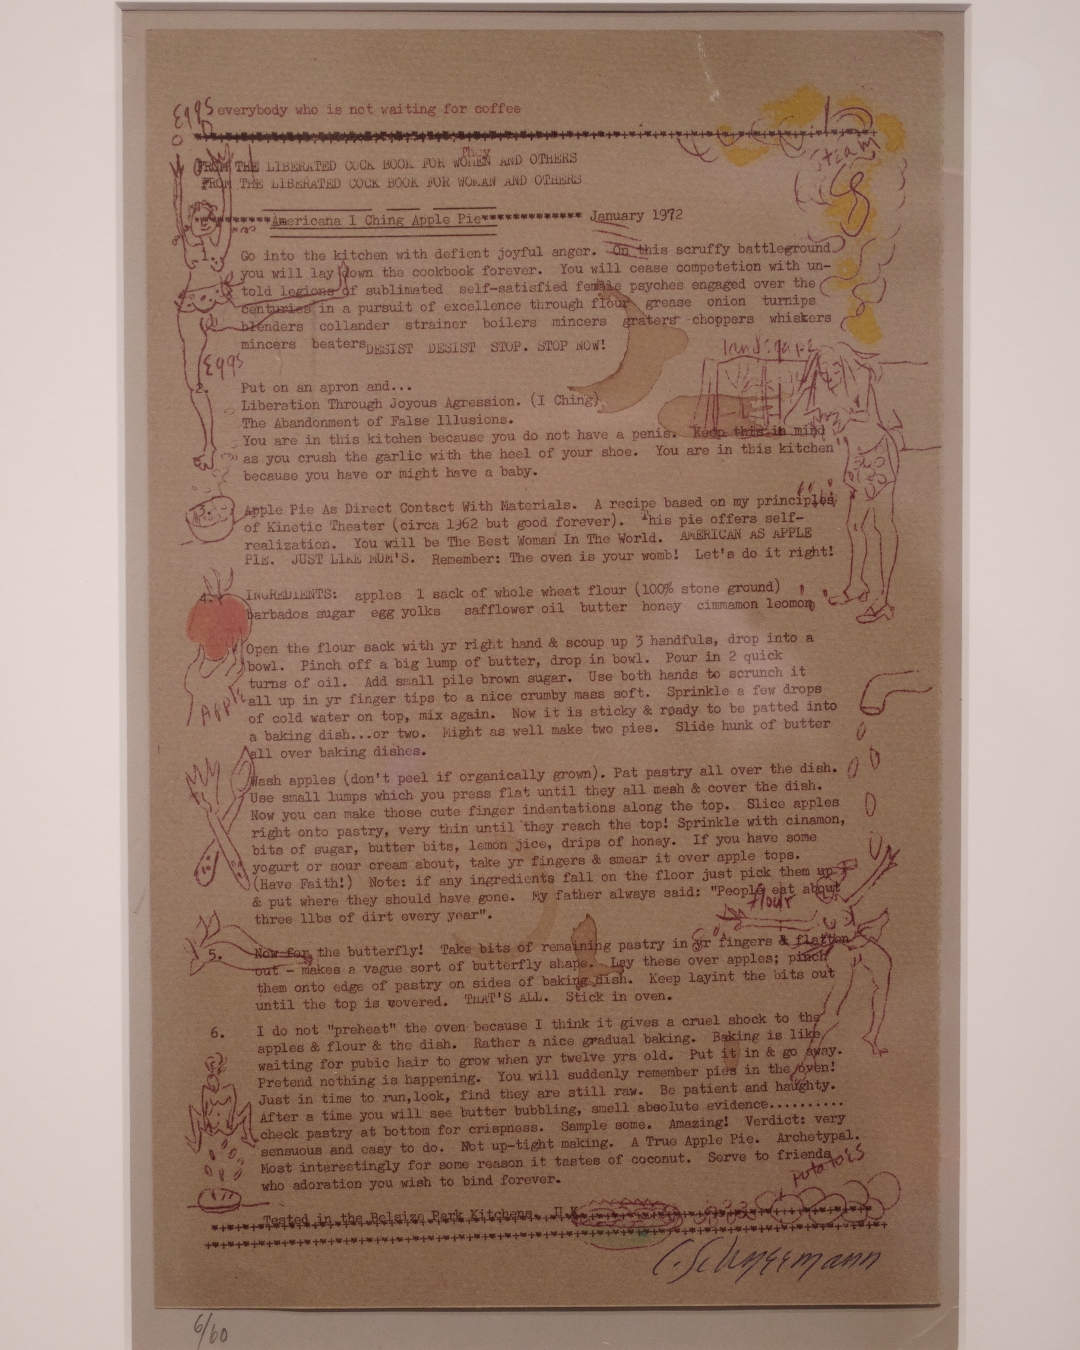 Eggs everybody who is not waiting for coffee
steam
They
FROM THE LIBERATED COCK BOOK FOR WOMEN AND OTHERS
FROM THE LIBERATED COCK BOOK FOR WOMAN AND OTHERS
*******Americana I Ching Apple Pie************* January 1972
1. Go into the kitchen with defient joyful anger. On this scruffy battleground
you will lay down the cookbook forever. You will cease competetion with un-
told legions of sublimated self-satisfied female psyches engaged over the
centuries in a pursuit of excellence through flour grease onion turnips
blenders collander strainer boilers mincers graters choppers whiskers
mincers beaters DESIST DESIST STOP. STOP NOW!
Eggs
2. Put on an apron and...
Liberation Through Joyous Agression. (I Ching)
The Abandonment of False Illusions.
You are in this kitchen because you do not have a penis. Keep this in mind
as you crush the garlic with the heel of your shoe. You are in this kitchen
because you have or might have a baby.
3. Apple Pie As Direct Contact With Materials. A recipe based on my principles
of Kinetic Theater (circa 1962 but good forever). This pie offers self-
realization. You will be The Best Woman In The World. AMERICAN AS APPLE
PIE. JUST LIKE MOM'S. Remember: The oven is your womb! Let's do it right!
4. INGREDIENTS: apples 1 sack of whole wheat flour (100% stone ground)
barbados sugar egg yolks safflower oil butter honey cimmamon leomon
Open the flour sack with yr right hand & scoup up 3 handfuls, drop into a
bowl. Pinch off a big lump of butter, drop in bowl. Pour in 2 quick
turns of oil. Add small pile brown sugar. Use both hands to scrunch it
all up in yr finger tips to a nice crumby mass soft. Sprinkle a few drops
of cold water on top, mix again. Now it is sticky & ready to be patted into
a baking dish...or two. Might as well make two pies. Slide hunk of butter
all over baking dishes.
Apple
Wash apples (don't peel if organically grown). Pat pastry all over the dish.
Use small lumps which you press flat until they all mesh & cover the dish.
Now you can make those cute finger indentations along the top. Slice apples
right onto pastry, very thin until they reach the top! Sprinkle with cinamon,
bits of sugar, butter bits, lemon jice, drips of honey. If you have some
yogurt or sour cream about, take yr fingers & smear it over apple tops.
(Have Faith!) Note: if any ingredients fall on the floor just pick them up
& put where they should have gone. My father always said: "People eat about
three llbs of dirt every year".
flour
5. Now for the butterfly! Take bits of remaining pastry in yr fingers & flatten
out - makes a vague sort of butterfly shape. Lay these over apples; pinch
them onto edge of pastry on sides of baking dish. Keep layint the bits out
until the top is covered. THAT'S ALL. Stick in oven.
6. I do not "preheat" the oven because I think it gives a cruel shock to the
apples & flour & the dish. Rather a nice gradual baking. Baking is like
waiting for pubic hair to grow when yr twelve yrs old. Put it in & go away.
Pretend nothing is happening. You will suddenly remember pies in the oven!
Just in time to run,look, find they are still raw. Be patient and haughty.
After a time you will see butter bubbling, smell absolute evidence..........
check pastry at bottom for crispness. Sample some. Amazing! Verdict: very
sensuous and easy to do. Not up-tight making. A True Apple Pie. Archetypal.
Most interestingly for some reason it tastes of coconut. Serve to friends
who adoration you wish to bind forever.
potatoes
Tested in the Belsize Park Kitchens
C. Schneemann
6/60